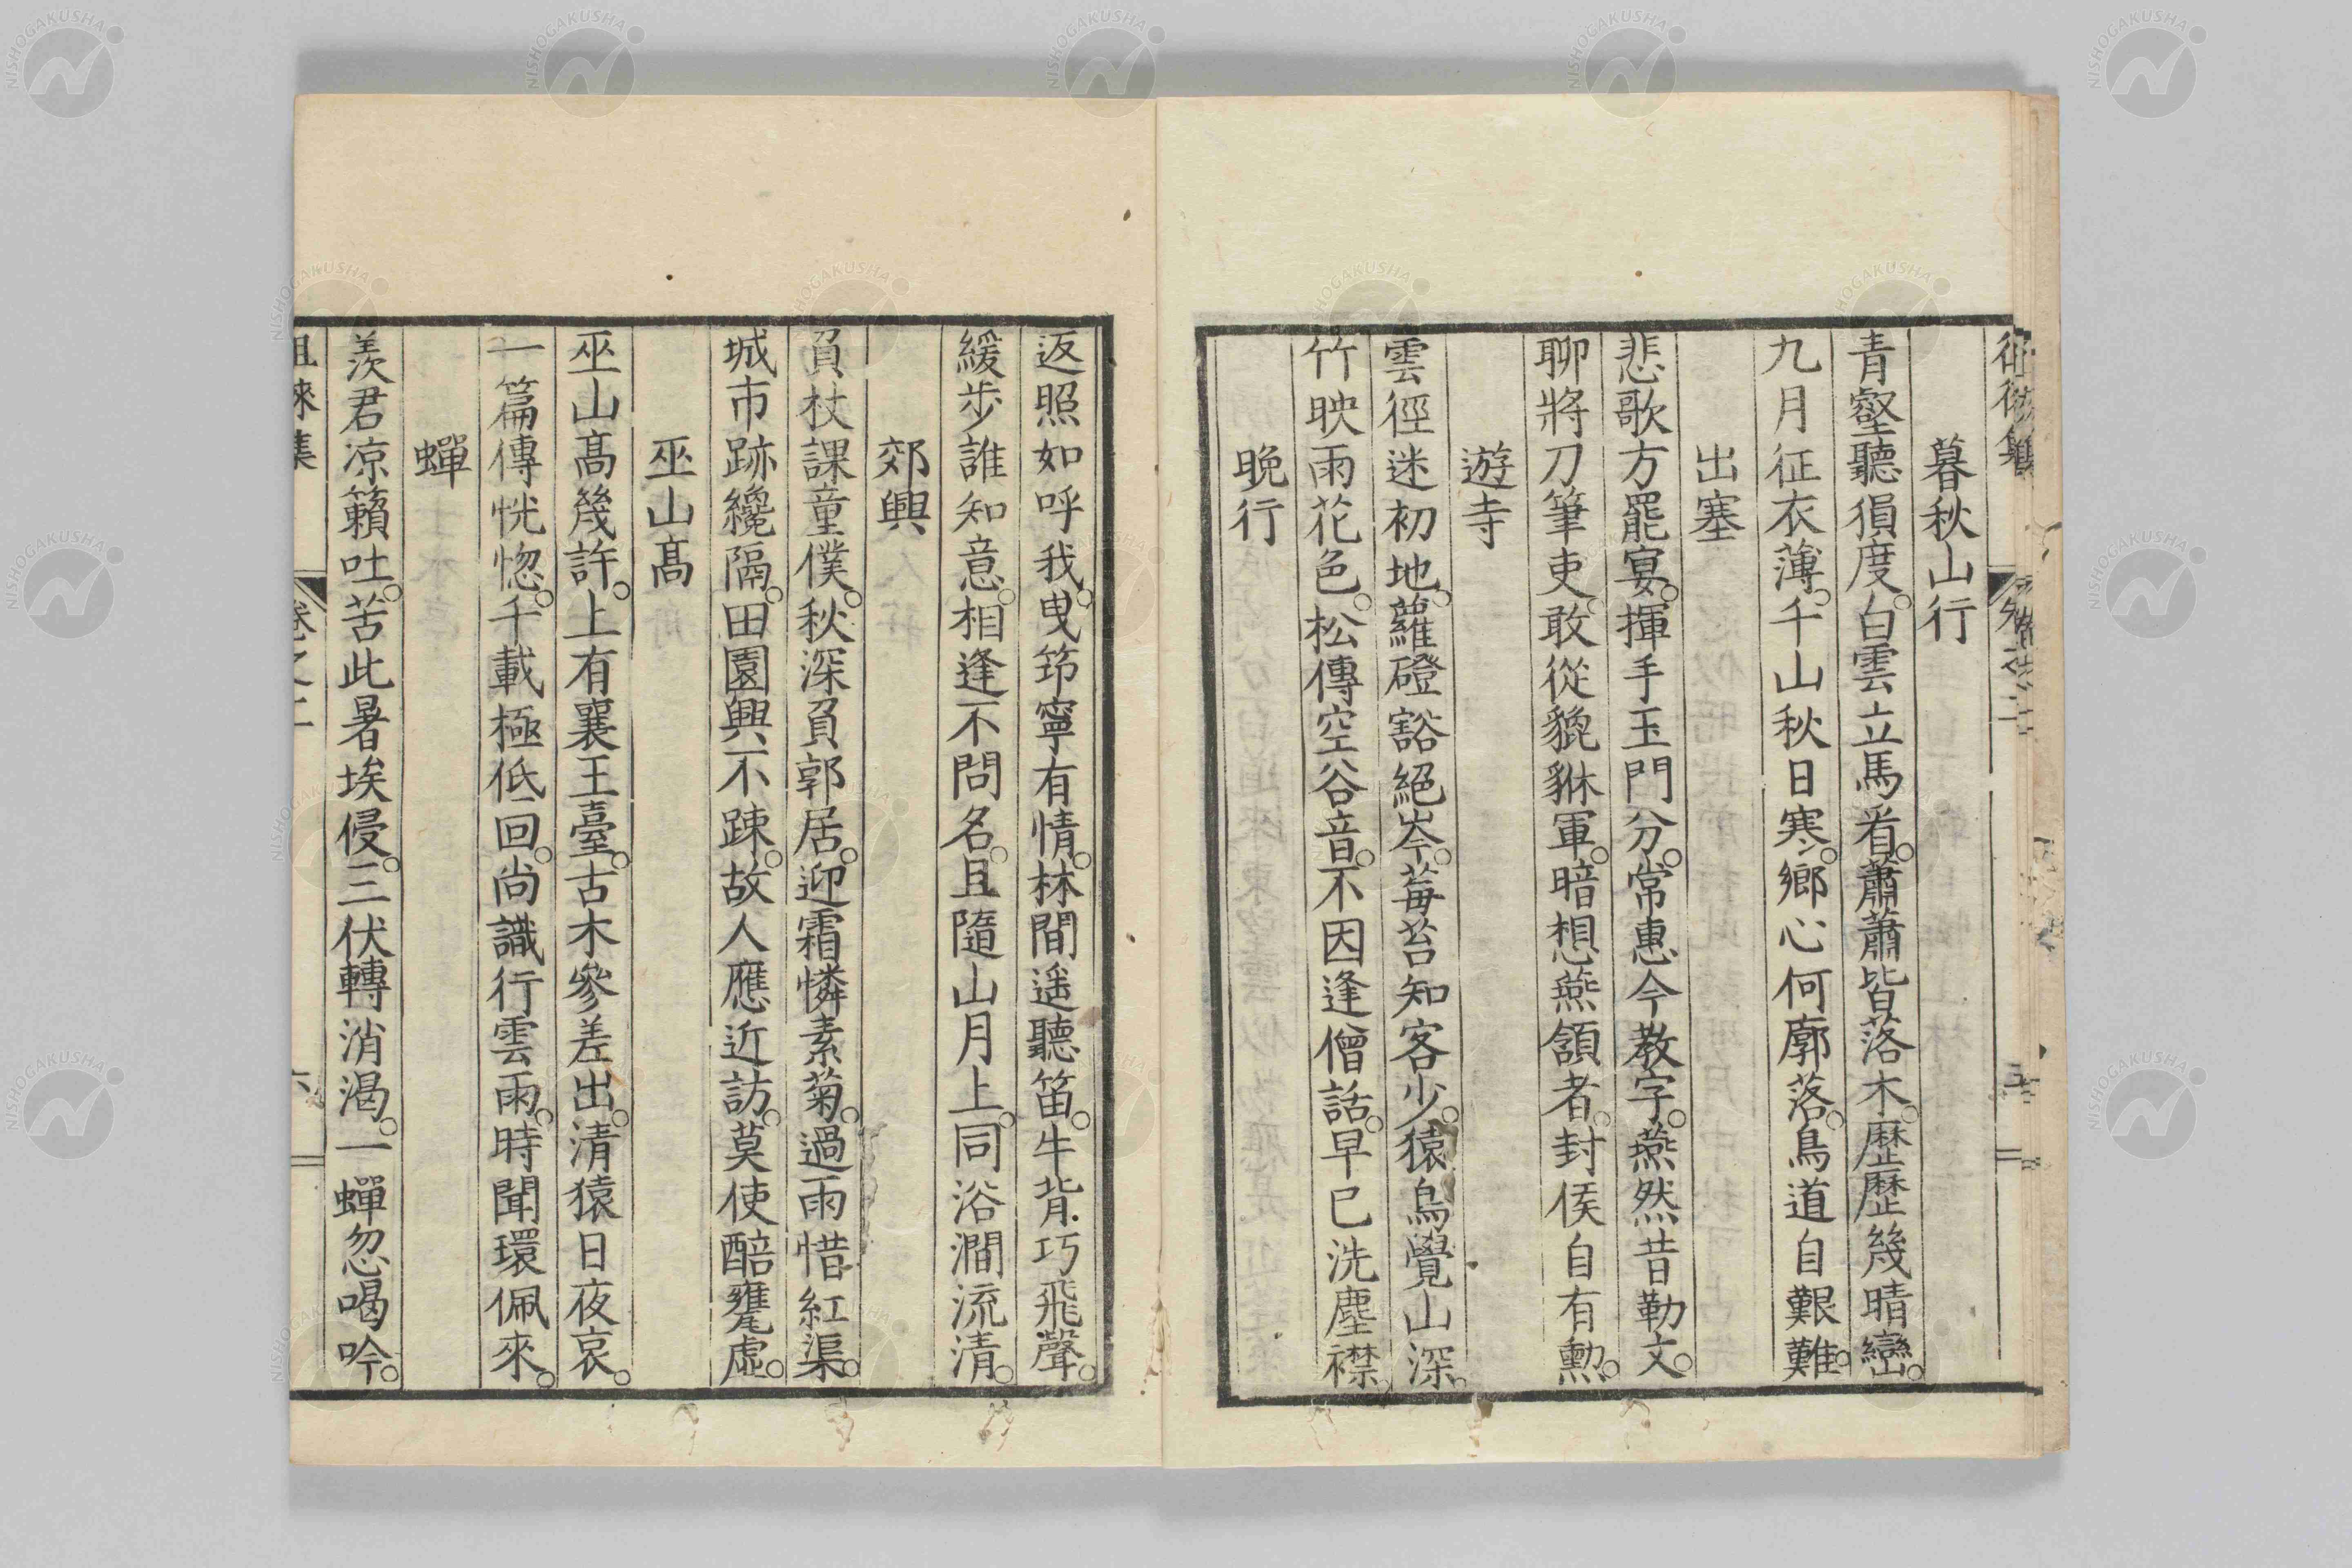 暮秋山行
青壑聽猿度。白雲立馬看。蕭蕭皆落木。歷歷幾晴巒。
九月征衣薄。千山秋日寒。鄉心何廓落。鳥道自艱難。
出塞
悲歌方罷宴。揮手玉門分。常惠今教字。燕然昔勒文。
聊將刀筆吏。敢從貔貅軍。暗想燕頷者。封侯自有勳。
遊寺
雲徑迷初地。蘿磴豁絕岑。莓苔知客少。猿鳥覺山深。
竹映雨花色。松傳空谷音。不因逢僧話。早已洗塵襟。
晚行
返照如呼我。曳筇寧有情。林間遥聽笛。牛背巧飛聲。
緩步誰知意。相逢不問名。且隨山月上。同浴澗流清。
郊興
負杖課童僕。秋深負郭居。迎霜憐素菊。過雨惜紅渠。
城市跡纔隔。田園興不踈。故人應近訪。莫使醅甕虛。
巫山髙
巫山髙幾許。上有襄王臺。古木參差出。清猿日夜哀。
一篇傳恍惚。千載極低回。尚識行雲雨。時聞環佩來。
蟬
羨君凉籟吐。苦此暑埃侵。三伏轉消渴。一蟬忽喝吟。
徂徠集 卷之二 六
NISHOGAKUSHA